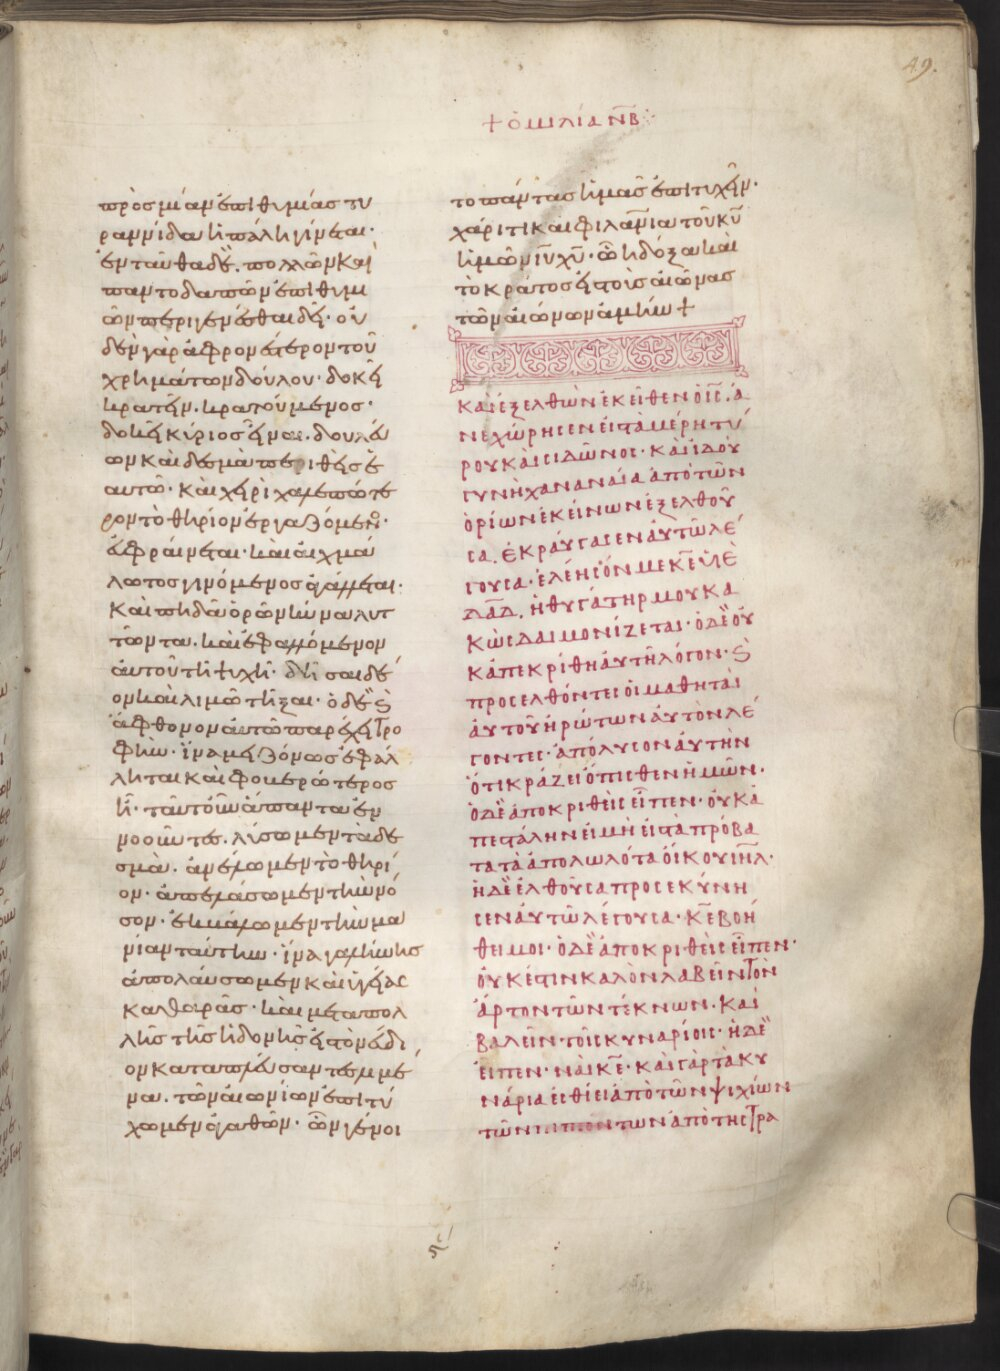 49.
+ ὁμιλία ΝΒ
πρὸς μίαν ἐπιθυμίας τυ
ραννίδα ἡ πάλη γίνεται·
ἐνταῦθα δὲ. πολλῶν καὶ
παντοδαπῶν ἐπιθυμι
ῶν περιγενέσθαι δέ· οὐ
δὲν γὰρ ἀφρονέστερον τοῦ
χρημάτων δούλου· δοκεῖ
κρατεῖν. κρατούμενος·
δοκεῖ κύριος εἶναι. δουλεύ
ων καὶ δεσμὰ περιθεὶς ἑ
αυτῶ· καὶ χείρὶ χαλεπώτε
ρον τὸ θηρίον ἐργαζόμενος·
εὐφραίνεται· καὶ αἰχμά
λωτος γινόμενος ἀγάλλεται·
Καὶ πηδᾶ ὁρῶν κύνα λυτ
τῶντα. καὶ ἐφαλλόμενον
αὐτοῦ τῆ ψυχῆ· δῆσαι δέ
ον καὶ λιμῶ τῆξαι· ὁ δὲ καὶ
ἄφθονον αὐτῶ παρέχει τρο
φὴν· ἵνα μειζόνως ἐφάλ
ληται καὶ φοβερώτερος
ῆ· ταῦτ᾽ οὖν ἅπαντα ἐν
νοοῦντες. λύσωμεν τὰ δε
σμά. ἀνέλωμεν τὸ θηρί
ον· ἀπελάσωμεν τὴν νό
σον· ἐκβάλωμεν τὴν μα
νίαν ταύτην· ἵνα γαλήνης
ἀπολαύσωμεν καὶ ὑγείας
καθαρᾶς· καὶ μετὰ πολ
λῆς τῆς ἡδονῆς εἰς τὸν εὔδι
ον καταπλεύσαντες λιμέ
να. τῶν αἰωνίων ἐπιτύ
χωμεν ἀγαθῶν· ὧν γένοι
το πάντας ἡμᾶς ἐπιτυχεῖν·
χάριτι καὶ φιλανία τοῦ κυ
ἡμῶν ιυ χυ· ὧ ἡ δόξα καὶ
τὸ κράτος εἰς τοὺς αἰῶνας
τῶν αἰώνων ἀμήν +
ΚΑΙ ΕΞΕΛΘὼΝ ἐΚΕῖΘΕΝ ὁ ΙC. Ἀ
ΝΕΧώΡΗCΕΝ ΕἰC Τὰ ΜέΡΗ Τύ
ΡΟΥ ΚΑὶ CΙΔῶΝΟC· ΚΑὶ ἰΔΟὺ
ΓΥΝὴ ΧΑΝΑΝΑίΑ ἀΠὸ ΤῶΝ
ὁΡίΩΝ ἐΚΕίΝΩΝ ἐΞΕΛΘΟῦ
CΑ. ἐΚΡΑύΓΑCΕΝ ΑὐΤῶ Λέ
ΓΟΥCΑ· ἐΛέΗCΟΝ ΜΕ ΚΕ Υἱὲ
ΔΑΔ. ἡ ΘΥΓάΤΗΡ ΜΟΥ ΚΑ
ΚῶC ΔΑΙΜΟΝίΖΕΤΑΙ· ὁ Δὲ Οὐ
Κ ἀΠΕΚΡίΘΗ ΑὐΤῆ ΛόΓΟΝ· ΚΑὶ
ΠΡΟCΕΛΘόΝΤΕC Οἱ ΜΑΘΗΤΑὶ
ΑὐΤΟῦ ἠΡώΤΩΝ ΑὐΤὸΝ Λέ
ΓΟΝΤΕC· ἀΠόΛΥCΟΝ ΑὐΤὴΝ
ὅΤΙ ΚΡάΖΕΙ ὄΠΙCΘΕΝ ἡΜῶΝ·
ὁ Δὲ ἀΠΟΚΡΙΘΕὶC ΕἶΠΕΝ· ΟὐΚ ἀ
ΠΕCΤάΛΗΝ ΕἰΜὴ ΕἰC Τὰ ΠΡόΒΑ
ΤΑ Τὰ ἀΠΟΛΩΛόΤΑ ΟἴΚΟΥ ΙΗΛ·
ἡ Δὲ ἐΛΘΟῦCΑ ΠΡΟCΕΚύΝΗ
CΕΝ ΑὐΤῶ ΛέΓΟΥCΑ· ΚΕ ΒΟή
ΘΕΙ ΜΟΙ· ὁ Δὲ ἀΠΟΚΡΙΘΕὶC ΕἶΠΕΝ·
ΟὐΚ ἔCΤΙΝ ΚΑΛὸΝ ΛΑΒΕῖΝ ΤὸΝ
ἄΡΤΟΝ ΤῶΝ ΤέΚΝΩΝ· ΚΑὶ
ΒΑΛΕῖΝ ΤΟῖC ΚΥΝΑΡίΟΙC· ἡ Δὲ
ΕἶΠΕΝ· ΝΑὶ ΚΕ· ΚΑὶ ΓὰΡ Τὰ ΚΥ
ΝάΡΙΑ ἐCΘίΕΙ ἀΠὸ ΤῶΝ ΨΙΧίΩΝ
ΤῶΝ ΠΙΠΤόΝΤΩΝ ἀΠὸ ΤῆC ΤΡΑ